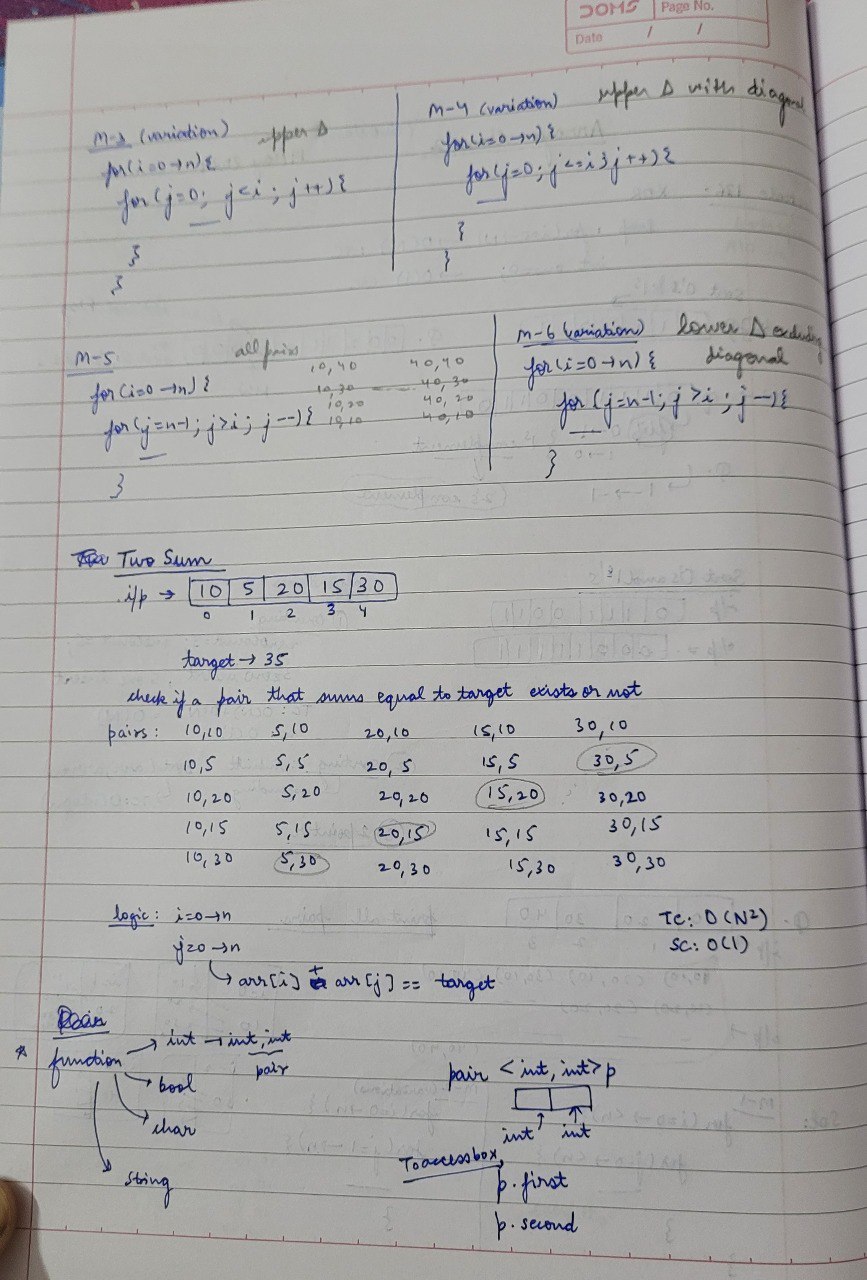 DOMS
Page No.
Date / /
M-3 (variation) upper Δ
for(i=0→n){
for(j=0; j<i; j++){
}
}
M-4 (variation) upper Δ with diagonal
for(i=0→n){
for(j=0; j<=i; j++){
}
}
M-5 all pairs
for(i=0→n){
for(j=n-1; j>i; j--){
}
10,40 40,40
10,30 --- 40,30
10,20 40,20
10,10 40,10
M-6 (variation) lower Δ excluding
diagonal
for(i=0→n){
for(j=n-1; j>i; j--){
}
Two Sum
i/p → 10 5 20 15 30
0 1 2 3 4
target → 35
check if a pair that sums equal to target exists or not
pairs: 10,10 5,10 20,10 15,10 30,10
10,5 5,5 20,5 15,5 30,5
10,20 5,20 20,20 15,20 30,20
10,15 5,15 20,15 15,15 30,15
10,30 5,30 20,30 15,30 30,30
logic: i=0→n
j=0→n
→ arr[i] + arr[j] == target
TC: O(N²)
SC: O(1)
Pair
* function → int → int, int
pair
bool
char
string
pair <int, int> p
int int
To access box,
p.first
p.second